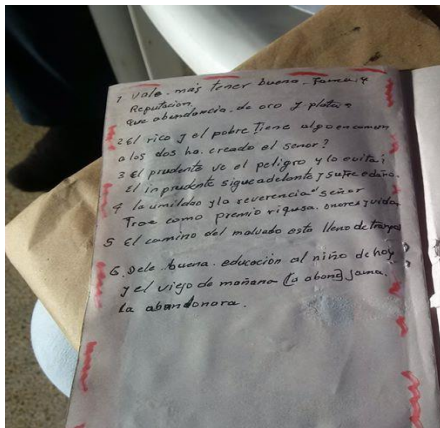 1 Vale. mas tener buena. Fama. y
Reputacion
Que abundancia. de oro y plata.
2 El rico y el pobre Tiene algo en comun
a los dos ha. creado el señor?
3 El prudente ve el peligro y lo evita;
El inprudente sigue adelante y sufre el daño.
4 la umildad y la reverencia al señor
Trae como premio riqusa. onores y vida
5 El camino del malvado esta lleno de
6. Dele buena. educación al niño de hoy
y el viejo de mañana jama.
la abandonara.